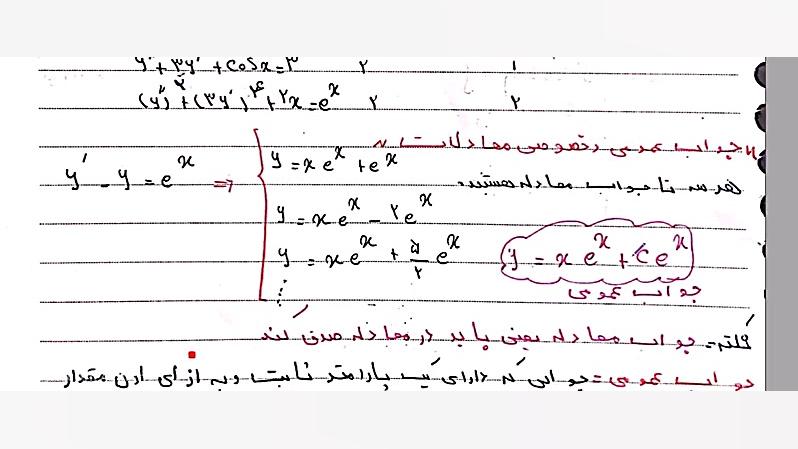 y″ + ۳y′ + cosx = ۳ ۲ ۱
(y″)^۲ + (۳y′)^۴ + ۲x = e^x ۲ ۲
«جواب عمومی و خصوصی معادلات»
y′ - y = e^x ⇒ y = xe^x + e^x
هر سه تا جواب معادله هستند.
y = xe^x - ۲e^x
y = xe^x + ۵/۲ e^x
y = xe^x + Ce^x
⋮
جواب عمومی
نکته= جواب معادله یعنی باید در معادله صدق کند
جواب عمومی= جوابی که دارای یک پارامتر ثابت و به ازای ادن مقدار